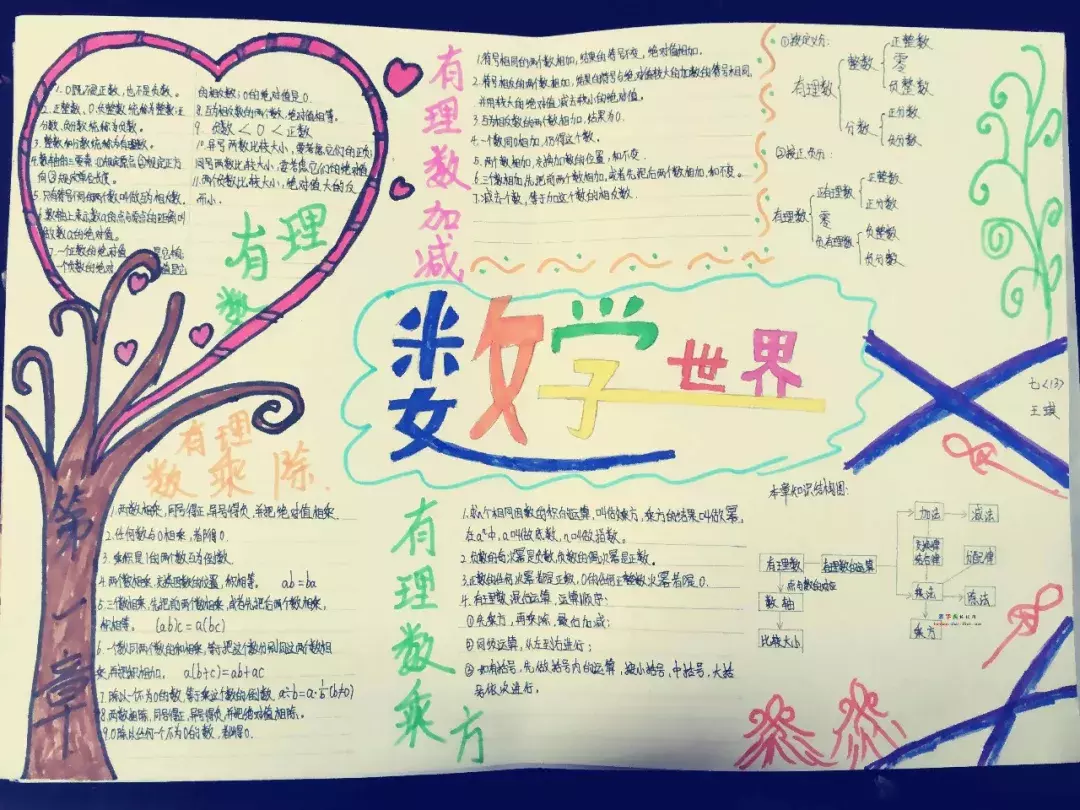 数学世界
第一章
有理数
1. 0既不是正数，也不是负数。
2. 正整数、0、负整数统称为整数；正
分数、负分数统称为
3. 整数和分数统称为有理数。
5. 只有符号不同的两个数叫做互为相反数。
6. 数轴上表示数a的点与原点的距离叫
做数a的绝对值。
7. 一个正数的绝对值
一个负数的绝对
的相反数；0的绝对值是0.
8. 互为相反数的两个数，绝对值相等。
9. 负数＜0＜正数
10. 异号两数比较大小，要考虑它们的正负；
同号两数比较大小，要考虑它们的绝对值
11. 两个负数比较大小，绝对值大的反
而小.
有理数加减
1. 符号相同的两个数相加，结果的符号不变，绝对值相加.
2. 符号相反的两个数相加，结果的符号与绝对值较大的加数的符号相同，
并用较大的绝对值减去较小的绝对值.
3. 互为相反数的两个数相加，结果为0.
4. 一个数同0相加，仍得这个数.
5. 两个数相加，交换加数的位置，和不变.
6. 三个数相加，先把前两个数相加，或者先把后两个数相加，和不变。
7. 减去个数，等于加这个数的相反数.
①按定义分：
有理数
整数
正整数
零
负整数
分数
正分数
负分数
②按正负分：
有理数
正有理数
正整数
正分数
零
负有理数
负整数
负分数
七<13>
有理数乘除
1. 两数相乘，同号得正，异号得负，并把绝对值相乘.
2. 任何数与0相乘，都得0.
3. 乘积是1的两个数互为倒数.
4. 两个数相乘，交换因数的位置，积相等。 ab=ba
5. 三个数相乘，先把前两个数相乘，或者先把后两个数相乘，
积相等。 (ab)c=a(bc)
6. 一个数同两个数的和相乘，等于把这个数分别同这两个数相
乘，再把积相加. a(b+c)=ab+ac
7. 除以一个不为0的数，等于乘这个数的倒数. a÷b=a·1/b(b≠0)
8. 两数相除，同号得正，异号得负，并把绝对值相除。
9. 0除以任何一个不为0的数，都得0.
有理数乘方
1. 求n个相同因数的积的运算，叫做乘方，乘方的结果叫做幂.
在aⁿ中，a叫做底数，n叫做指数。
2. 负数的奇次幂是负数，负数的偶次幂是正数。
3. 正数的任何次幂都是正数，0的任何正整数次幂都是0.
4. 有理数混合运算，运算顺序：
①先乘方，再乘除，最后加减；
②同级运算，从左到右进行；
③如有括号，先做括号内的运算，按小括号、中括号、大括
号依次进行.
本章知识结构图：
加法
减法
交换律
结合律
分配律
有理数
有理数的运算
点与数的对应
数轴
乘法
除法
比较大小
乘方